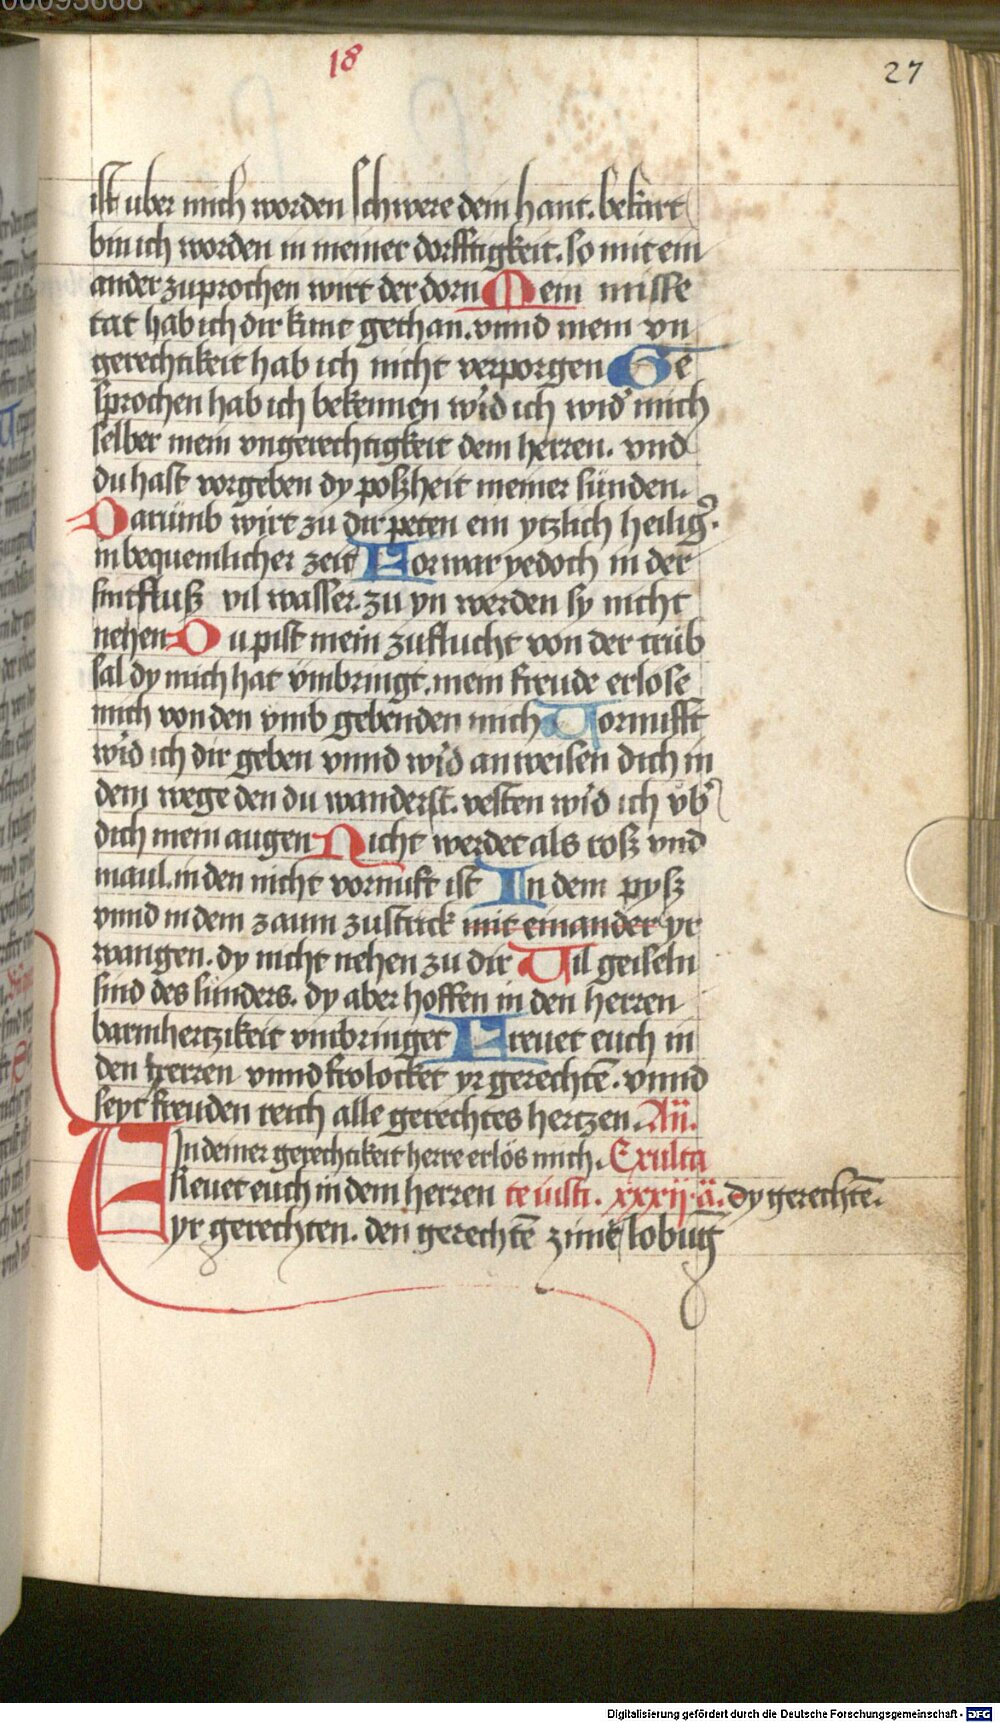 00093668
18
27
ist uber mich worden schwere dein hant. bekart
bin ich worden in meiner dorfftigkeit. so mit ein
ander zuprochen wirt der dorn Mein misse
tat hab ich dir kunt gethan. vnnd mein vn
gerechtikeit hab ich nicht verporgen Ge
sprochen hab ich bekennen w'id ich wid' mich
selber mein vngerechtigkeit dem herren. vnd
du hast vorgeben dy poßheit meiner sünden.
Darümb wirt zu dir peten ein ytzlich heilig'.
in bequemlicher zeit Vorwar yedoch in der
sintfluß vil wasser. zu yn werden sy nicht
nehen Du pist mein zuflucht von der trüb
sal dy mich hat vmbringt. mein freude erlose
mich von den vmb gebenden mich Vornufft
w'id ich dir geben vnnd w'id anweisen dich in
dem wege den du wanderst. vesten w'id ich vb'
dich mein augen Nicht werdet als roß vnd
maul. in den nicht vornuft ist In dem pyß
vnnd in dem zaum zustrick mit einander yr
wangen. dy nicht nehen zu dir Vil geiseln
sind des sünders. dy aber hoffen in den herren
barmhertzikeit vmbringet Freuet euch in
den herren vnnd frolocket yr gerechtē. vnnd
seyt freuden reich alle gerechtes hertzen. Añ.
In deiner gerechtikeit herre erlös mich. Exulta
Freuet euch in dem herren te iusti. xxxij. ā. dy gerechtē.
yr gerechten. den gerechtē zimē lobūg
Digitalisierung gefördert durch die Deutsche Forschungsgemeinschaft - DFG